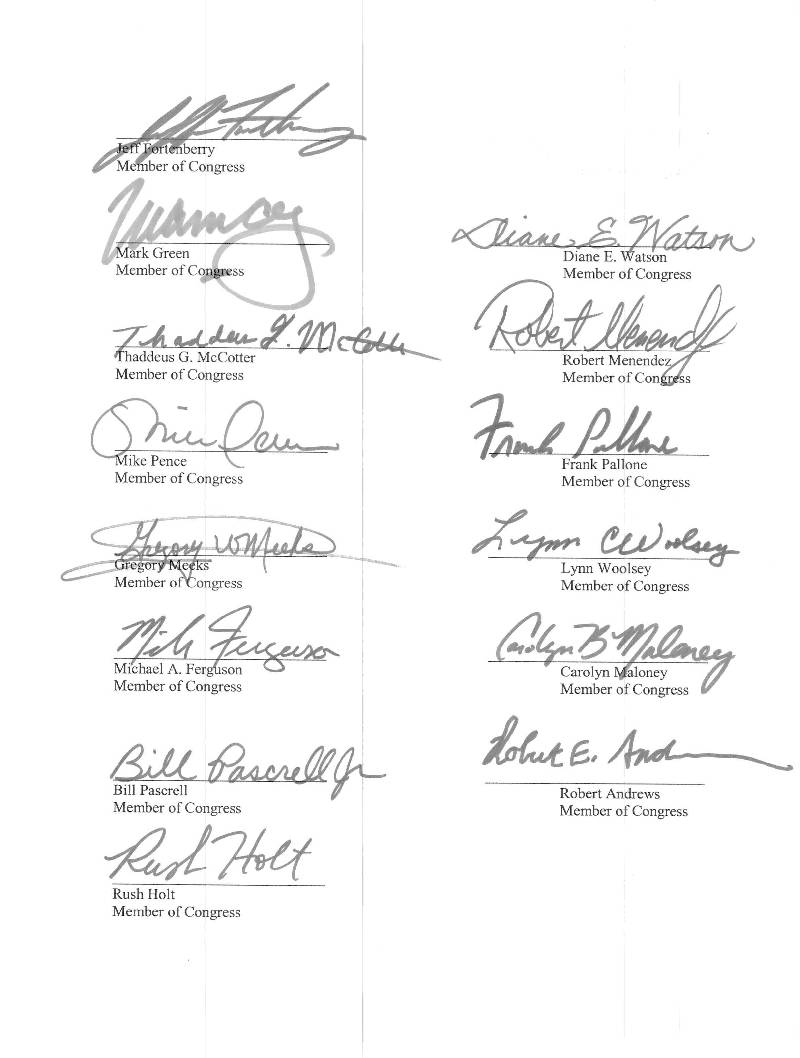 Jeff Fortenberry
Jeff Fortenberry
Member of Congress
Mark Green
Member of Congress
Thaddeus G. McCotter
Thaddeus G. McCotter
Member of Congress
Mike Pence
Mike Pence
Member of Congress
Gregory W Meeks
Gregory Meeks
Member of Congress
Mike Ferguson
Michael A. Ferguson
Member of Congress
Bill Pascrell Jr
Bill Pascrell
Member of Congress
Rush Holt
Rush Holt
Member of Congress
Diane E. Watson
Diane E. Watson
Member of Congress
Robert Menendez
Robert Menendez
Member of Congress
Frank Pallone
Frank Pallone
Member of Congress
Lynn C Woolsey
Lynn Woolsey
Member of Congress
Carolyn B Maloney
Carolyn Maloney
Member of Congress
Robert E. Andrews
Robert Andrews
Member of Congress